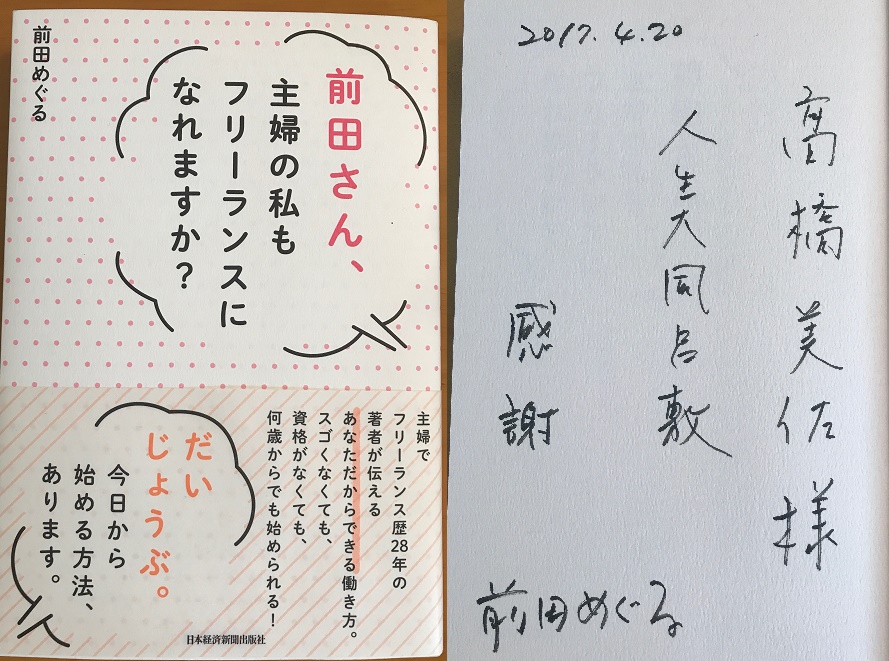 前田さん、
主婦の私も
フリーランスに
なれますか？
前田めぐる
主婦で
フリーランス歴28年の
著者が伝える
あなただからできる働き方。
スゴくなくても、
資格がなくても、
何歳からでも始められる！
だい
じょうぶ。
今日から
始める方法、
あります。
日本経済新聞出版社
2017.4.20
高橋美佐様
人生大風呂敷
感謝
前田めぐる